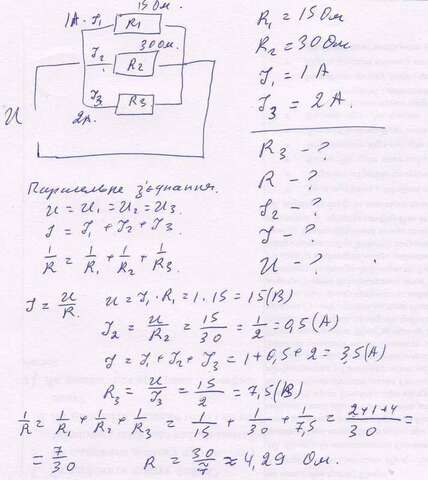 15 Ом.
1А. I₁ R₁
30 Ом.
I₂ R₂
I₃ R₃
2А.
U
R₁ = 15 Ом
R₂ = 30 Ом
I₁ = 1 А
I₃ = 2 А.
R₃ - ?
R - ?
I₂ - ?
I - ?
U - ?
Паралельне з'єднання.
U = U₁ = U₂ = U₃.
I = I₁ + I₂ + I₃.
1/R = 1/R₁ + 1/R₂ + 1/R₃.
I = U/R. U = I₁ · R₁ = 1 · 15 = 15 (В)
I₂ = U/R₂ = 15/30 = 1/2 = 0,5 (А)
I = I₁ + I₂ + I₃ = 1 + 0,5 + 2 = 3,5 (А)
R₃ = U/I₃ = 15/2 = 7,5 (В)
1/R = 1/R₁ + 1/R₂ + 1/R₃ = 1/15 + 1/30 + 1/7,5 = 2+1+4/30 =
= 7/30 R = 30/7 ≈ 4,29 Ом.